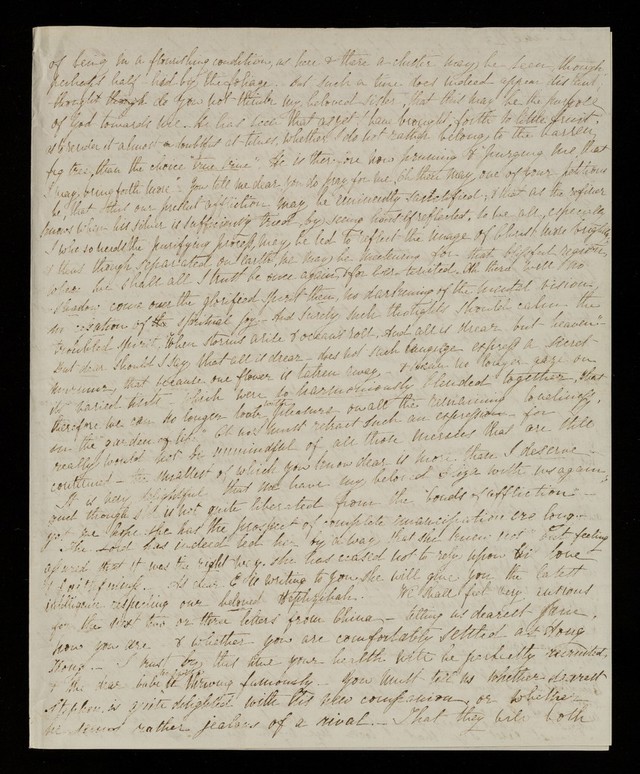 of being in a flourishing condition, as here & there a cluster may be seen, though
perhaps half hid by the foliage. But such a time does indeed appear distant,
thought though do you not think my beloved sister, that this may be the purpose
of God towards me. He has seen that as yet I have brought forth so little fruit
as to render it almost a doubt at times, whether I do not rather belong to the barren
fig tree, than the choice "true vine" He is therefore now pruning & purging me, that
I may bring forth more. You tell me dear you do pray for me, Oh then may one of your petitions
be, that this our present affliction may be eminently sanctified, & that as the refiner
knows when his silver is sufficiently tried by seeing himself reflected, so we all, especially
I who so need the purifying process, may be led to reflect the image of Christ more brightly
& thus though separated on earth we may be meetening for that blissful region,
where we shall all I trust be once again & for ever reunited. Ah there will no
shadow come over the glorified spirit then, no darkening of the mental vision,
no cessation of the spiritual joy. And surely such thoughts should calm the
troubled spirit "When storms arise & oceans roll. And all is drear but heaven"
But dear should I say that all is drear - does not such language express a secret
murmur that because one flower is taken away - & we can no longer gaze on
its varied tints which were so harmoniously blended together, that
therefore we can no longer look with pleasure on all the remaining ones
in the "garden of life" Oh no I must retract such an expression - for
really I would not be unmindful of all those mercies that are still
continued - the smallest of which you know dear is more than I deserve -
It is very delightful that we have my beloved Eliza with us again,
and though she is not quite liberated from the bonds of affliction -
yet we hope she has the prospect of complete emancipation ere long -
The Lord has indeed led her by a way that she knew not but feeling
assured that it was the right way, she has ceased not to rely upon the love
of friend. As dear E is writing to you she will give you the latest
intelligence respecting our beloved Hephzibah. We shall feel very anxious
for the next two or three letters from China - telling us dearest Jane,
how you are & whether you are comfortably settled at Hong
Kong. - I trust by this time your health will be perfectly recruited,
& the dear babe thriving famously - You must tell us whether dearest
Stephen is quite delighted with his new companion, or whether
he seems rather jealous of a rival - That they will both